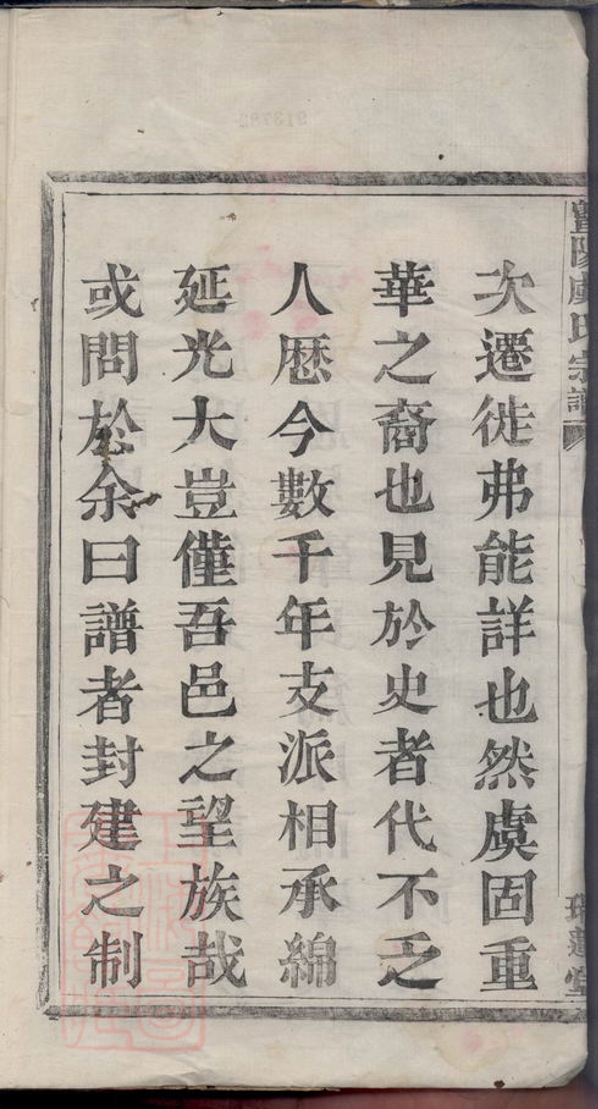 暨陽虞氏宗譜
次遷徙弗能詳也然虞固重
華之裔也見於史者代不乏
人歴今數千年支派相承綿
延光大豈僅吾邑之望族哉
或問於余曰譜者封建之制